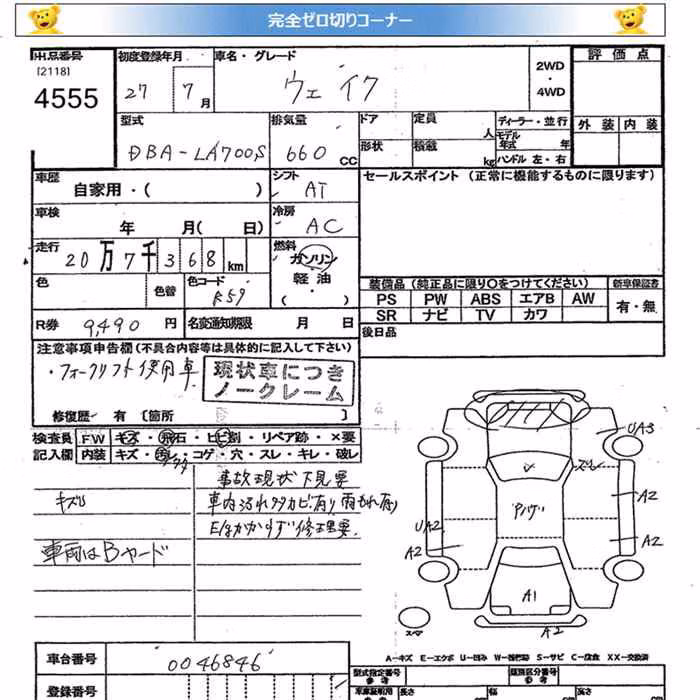 完全ゼロ切りコーナー
出品番号
[2118]
4555
初度登録年月
27 7月
車名・グレード
ウェイク
2WD
・
4WD
評価点
外装 内装
型式
DBA-LA700S
排気量
660 CC
ドア
形状
定員 人
積載 kg
ディーラー・並行
モデル年式 年
ハンドル 左・右
車歴
自家用・( )
シフト
AT
セールスポイント (正常に機能するものに限ります)
車検
年 月( 日)
冷房
AC
走行
20万7千368km
燃料
ガソリン
軽油
( ・ )
色
色替
色コード
R59
装備品 (純正品に限り○をつけてください)
新車保証書
PS PW ABS エアB AW
有・無
SR ナビ TV カワ
R券 9,490 円
名変通知期限 月 日
後日品
注意事項申告欄(不具合内容等は具体的に記入して下さい)
・フォークリフト使用車
現状車につき
ノークレーム
修復歴・有 [箇所 ]
検査員
記入欄
FW キズ・飛石・ヒビ割・リペア跡・×要
内装 キズ・汚レ・コゲ・穴・スレ・キレ・破レ
事故現状 下見要
キズ
車内汚れ 多カビ有り 雨もれ有り
Eはかからず 修理要
車両はBヤード
UA3
A2
A2
UA2
A2
A1
A2
スペア
A－キズ E－エクボ U－凹み W－補修跡 S－サビ C－腐食 XX－交換済
車台番号
0046846
登録番号
型式指定番号
参考
類別区分番号
参考
長さ
幅
高さ